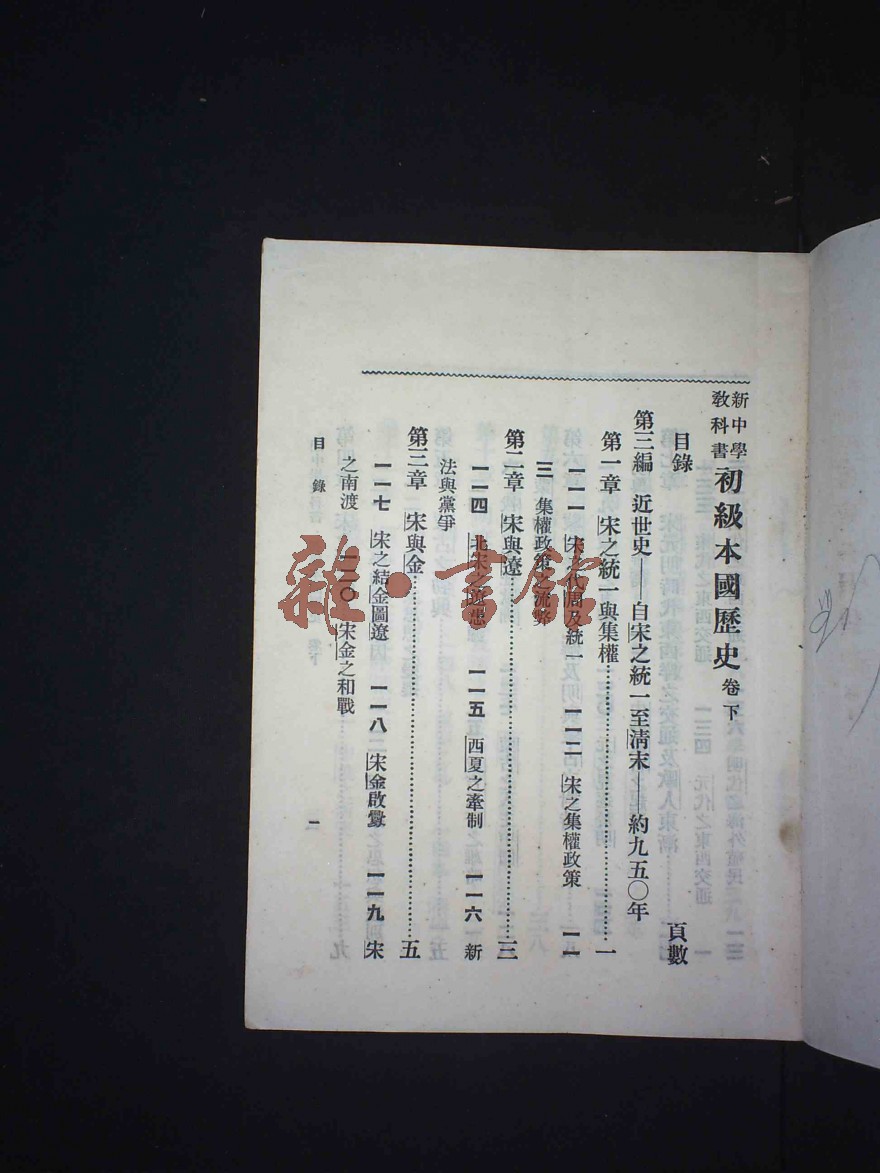 新中學教科書 初級本國歷史 卷下
目錄 頁數
第三編 近世史——自宋之統一至清末——約九五〇年
第一章 宋之統一與集權……一
一一一 宋之代周及統一 一一二 宋之集權政策 一一
三 集權政策之流弊
第二章 宋與遼……三
一一四 北宋之邊患 一一五 西夏之牽制 一一六 新
法與黨爭
第三章 宋與金……五
一一七 宋之結金圖遼 一一八 宋金啟釁 一一九 宋
之南渡 一二〇 宋金之和戰
目錄 一
雜·書館